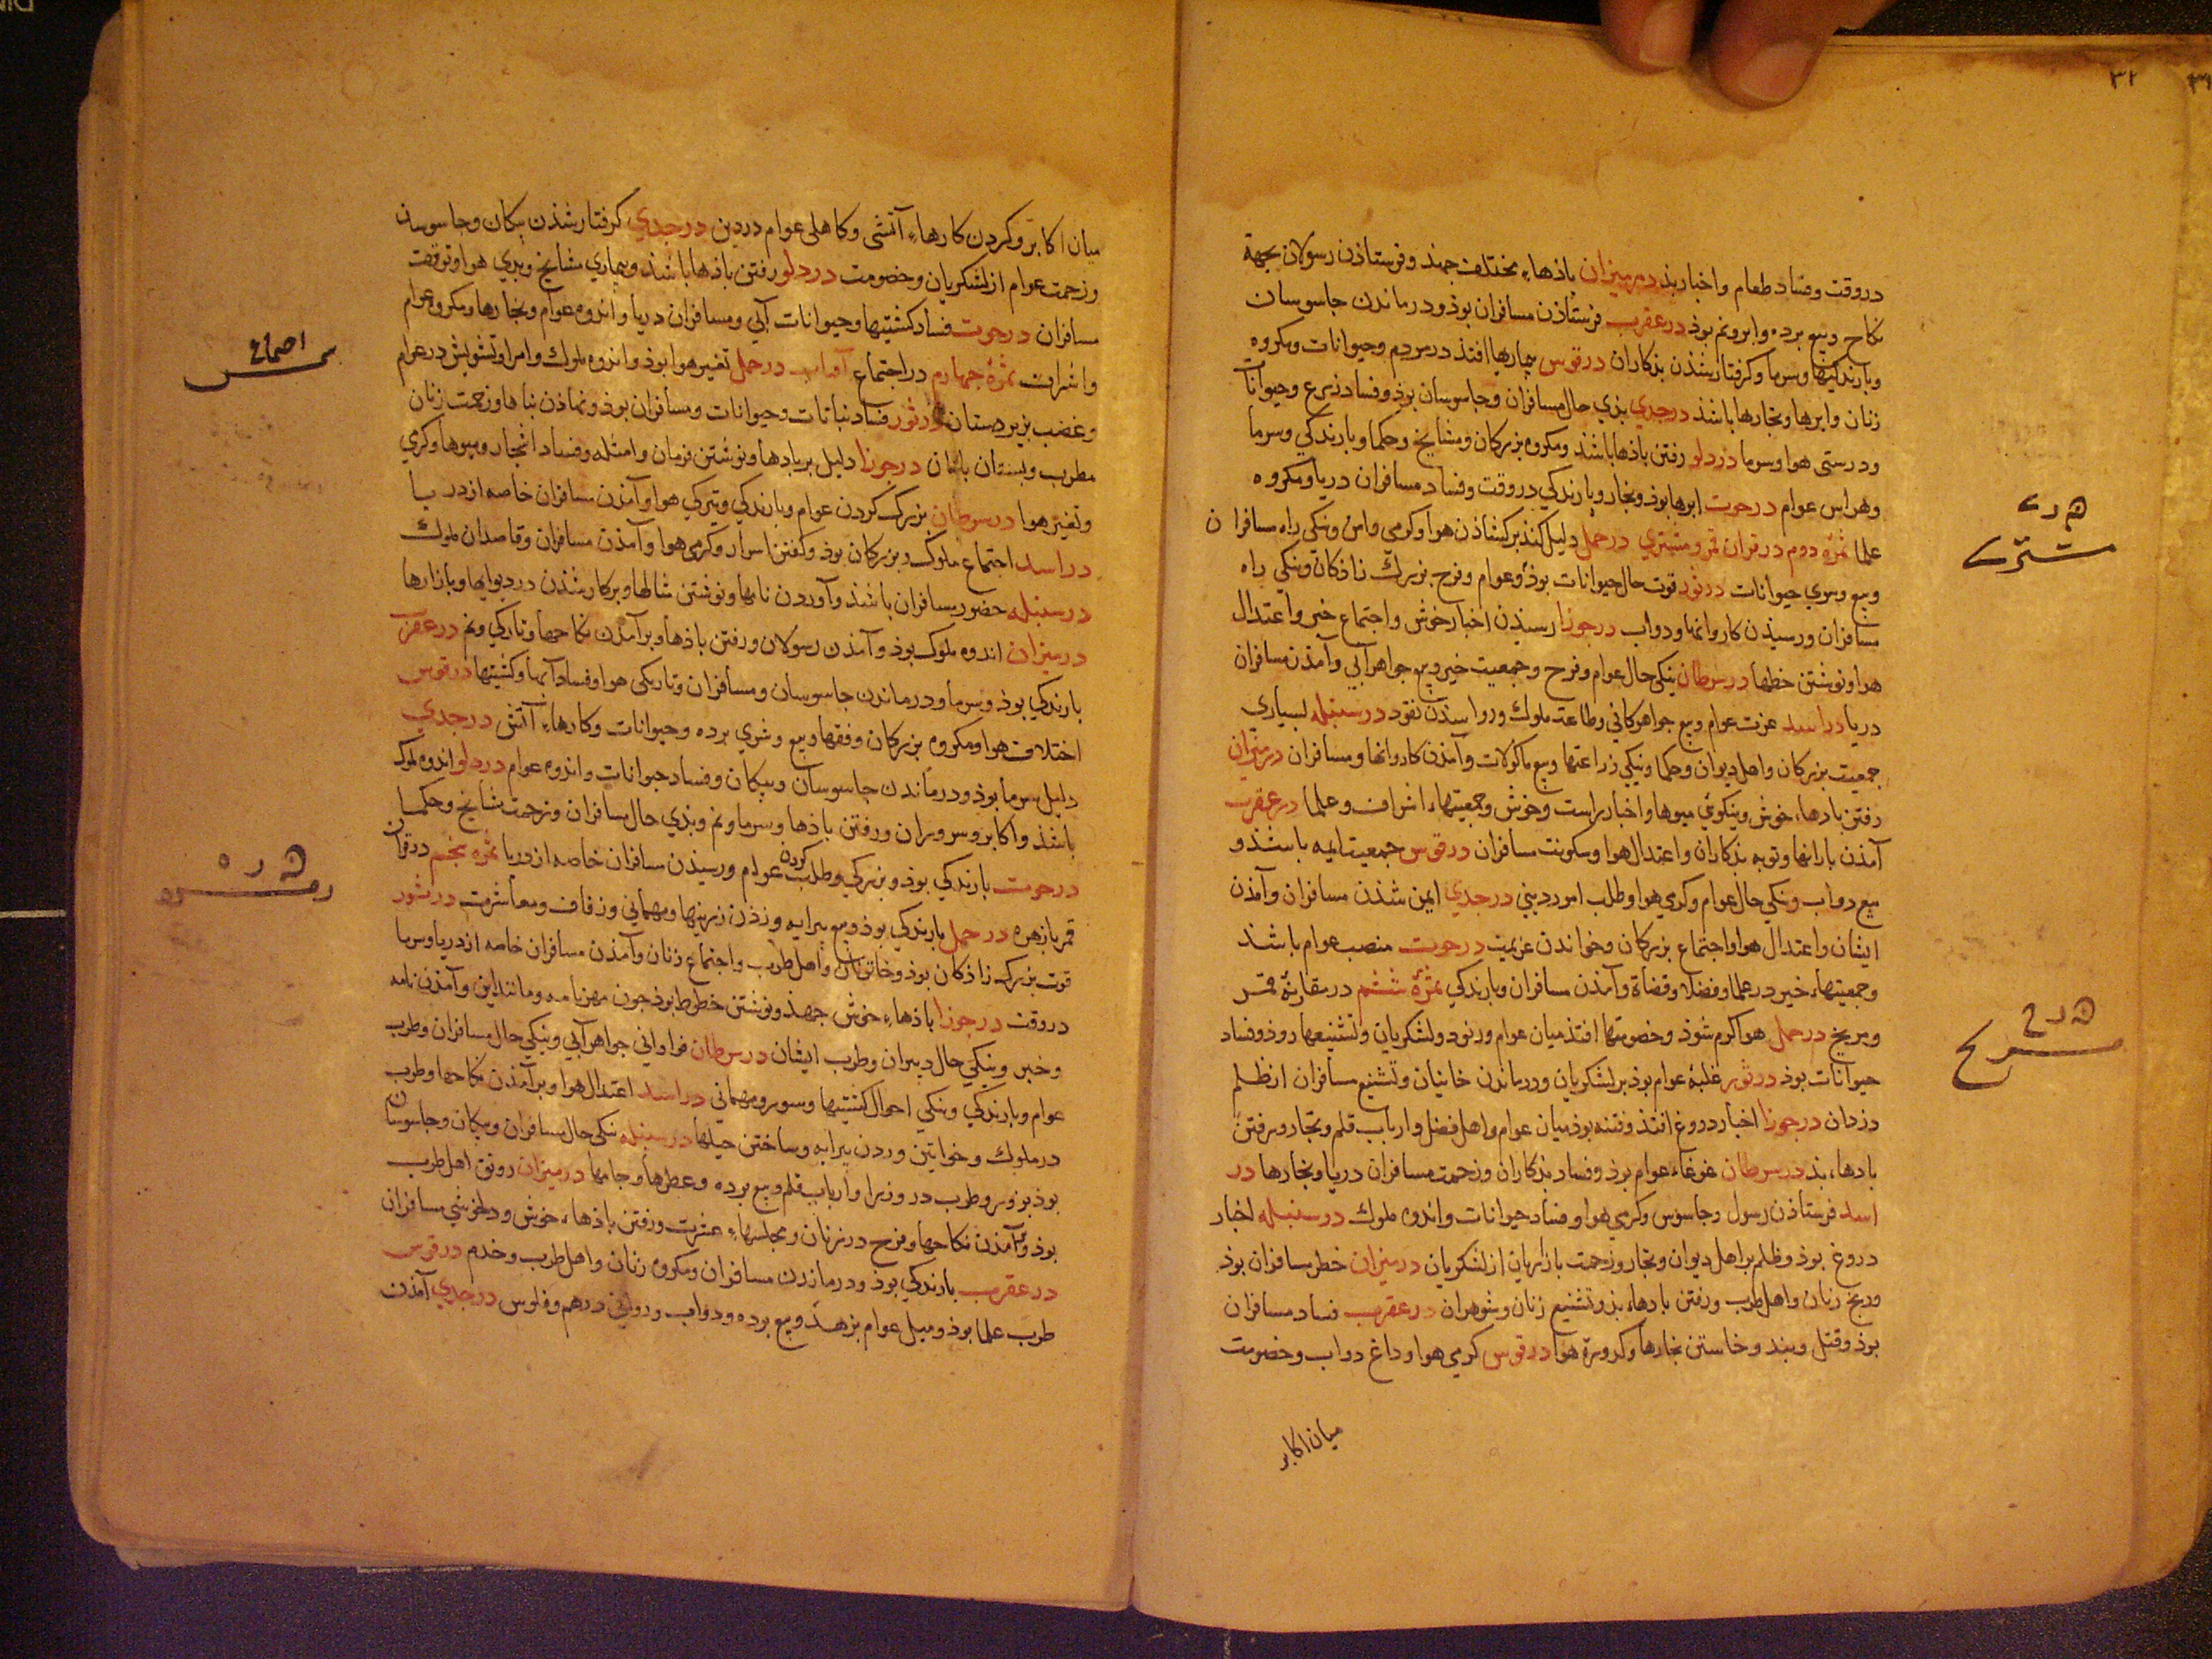 ۳۲
در وقت و فساد طعام و اخبار بد در میزان باذهاء مختلف جهند و فرستاذن رسولان بجهة
نکاح و بیع برده و ابر و نم بوذ در عقرب فرستاذن مسافران بوذ و درماندن جاسوسان
و بارندکیها و سرما و کرفتار شذن بذکاران در قوس بیماریها افتذ در مردم و حیوانات و مکروه
زنان و ابرها و بخارها باشذ در جدي بذي حال مسافران و جاسوسان بوذ و فساد زرع و حیوانات
و درستی هوا و سرما در دلو رفتن باذها باشذ و مکروه بزرکان و مشایخ و حکما و بارندکي و سرما
و هراس عوام در حوت ابرها بوذ و بخار و بارندکي در وقت و فساد مسافران دریا و مکروه
علما ثمرۀ دوم در قران قمر و مشتري در حمل دلیل کنذ بر کشاذن هوا و کرمی و امن و نیکی راه مسافران
و بیع و شري حیوانات در ثور قوت حال حیوانات بوذ و عوام و فرح بزرك زاذکان و نیکي راه
مسافران و رسیذن کاروانها و دواب در جوزا رسیذن اخبار خوش و اجتماع خیر و اعتدال
هوا و نوشتن خطها در سرطان نیکی حال عوام و فرح و جمعیت خیر و بیع جواهر آبي و آمذن مسافران
دریا در اسد عزت عوام و بیع جواهر کاني و طاعت ملوك و روا شذن نقود در سنبله بسیاري
جمعیت بزرکان و اهل دیوان و حکما و نیکي زراعتها و بیع ماکولات و آمذن کاروانها و مسافران در میزان
رفتن بادهاء خوش و نیکوئي میوها و اخبار راست و خوش و جمعیتهاء اشراف و علما در عقرب
آمذن بارانها و توبه بذکاران و اعتدال هوا و سکونت مسافران در قوس جمعیت ایمه باشذ و
بیع دواب و نیکي حال عوام و کرمي هوا و طلب امور دیني در جدي ایمن شذن مسافران و آمذن
ایشان و اعتدال هوا و اجتماع بزرکان و خواندن عزیمت در حوت منصب عوام باشذ
و جمعیتهاء خیر در علما و فضلا و قضاة و آمذن مسافران و بارندکي ثمرۀ ششم در مقارنۀ قمر
و مریخ در حمل هوا کرم شوذ و خصومتها افتذ میان عوام و رنود و لشکریان و تشنیعها روذ و فساد
حیوانات بوذ در ثور غلبۀ عوام بوذ بر لشکریان و درماندن خاینان و تشنیع مسافران از ظلم
دزدان در جوزا اخبار دروغ افتذ و فتنه بوذ میان عوام و اهل فضل و ارباب قلم و تجار و رفتن
بادهاء بذ در سرطان غوغاء عوام بوذ و فساد بذکاران و زحمت مسافران دریا و بخارها در
اسد فرستاذن رسول و جاسوس و کرمي هوا و فساد حیوانات و اندوه ملوك در سنبله اخبار
دروغ بوذ و ظلم بر اهل دیوان و تجار و زحمت بازاریان از لشکریان در میزان خطر مسافران بوذ
و رنج زنان و اهل طرب و رفتن بادهاء بذ و تشنیع زنان و شوهران در عقرب فساد مسافران
بوذ و قتل و بند و خاستن بخارها و کدورة هوا در قوس کرمي هوا و داغ دواب و خصومت
میان اکابر
مشتری
مریخ
میان اکابر و کردن کارهاء آتشی و کاهلی عوام در دین در جدي کرفتار شذن پیکان و جاسوسان
و زحمت عوام از لشکریان و خصومت در دلو رفتن باذها باشذ و بیماري مشایخ و بدي هوا و توقف
مسافران در حوت فساد کشتیها و حیوانات آبي و مسافران دریا و اندوه عوام و بخارها و مکروه عوام
و اشراف ثمرۀ چهارم در اجتماع آفتاب در حمل تغیر هوا بوذ و اندوه ملوك و امرا و تشویش در عوام
و غضب بر زیردستان در ثور فساد نباتات و حیوانات و مسافران بوذ و نماذن بناها و زحمت زنان
مطرب و بستدن در جوزا دلیل بر بادها و نوشتن فرمان و امثله و فساد اشجار و میوها و کرمي
و تغیر هوا در سرطان بزرک کردن عوام و بارندکي و تیرکي هوا و آمذن مسافران خاصه از دریا
در اسد اجتماع ملوک و بزرکان بوذ و کفتن اسرار و کرمي هوا و آمذن مسافران و قاصدان ملوك
در سنبله حضور مسافران باشذ و آوردن نامها و نوشتن مثالها و بر کار شذن در دیوانها و بازارها
در میزان اندوه ملوك بوذ و آمذن رسولان و رفتن باذها و برآمذن نکاحها و تاریکي و نم در عقرب
بارندکي بوذ و سرما و درماندن جاسوسان و مسافران و تاریکی هوا و فساد آبها و کشتیها در قوس
اختلاف هوا و مکروه بزرکان و فقها و بیع و شري برده و حیوانات و کارهاء آتش در جدي
دلیل سرما بوذ و درماندن جاسوسان و پیکان و فساد حیوانات و اندوه عوام در دلو اندوه ملوک
باشذ و اکابر و سروران و رفتن باذها و سرما و نم و بذي حال مسافران و زحمت مشایخ و حکما
در حوت بارندکي بوذ و بزرکي و طلب کردن عوام و رسیذن مسافران خاصه از دریا ثمرۀ پنجم در قران
قمر با زهره در حمل بارندکي بوذ و بیع پیرایه و زذن زرینها و مهماني و زفاف و معاشرت در ثور
قوت بزرک زاذکان بوذ و خاتونان و اهل طرب و اجتماع زنان و آمذن مسافران خاصه از دریا و سرما
در وقت در جوزا باذهاء خوش جهذ و نوشتن خطوط بوذ چون مهرنامه و مانند این و آمذن نامه
و خبر و نیکي حال دبیران و طرب ایشان در سرطان فراواني جواهر آبي و نیکي حال مسافران و طرب
عوام و بارندکي و نیکي احوال کشتیها و سور و مهماني در اسد اعتدال هوا و برآمذن نکاحها و طرب
در ملوك و خواتین و زدن پیرایه و ساختن حیلها در سنبله نیکی حال مسافران و پیکان و جاسوسان
بوذ و طرب در وزرا و ارباب قلم و بیع برده و عطرها و جامها در میزان رونق اهل طرب
بوذ و برآمذن نکاحها و فرح در زنان و مجلسهاء عشرت و رفتن باذهاء خوش و دلخوشي مسافران
در عقرب بارندکي بوذ و درماندن مسافران و مکروه زنان و اهل طرب و خدم در قوس
طرب علما بوذ و میل عوام بزهد و بیع برده و دواب و روائي درهم و فلوس در جدي آمذن
اجتماع
شمس
زهره